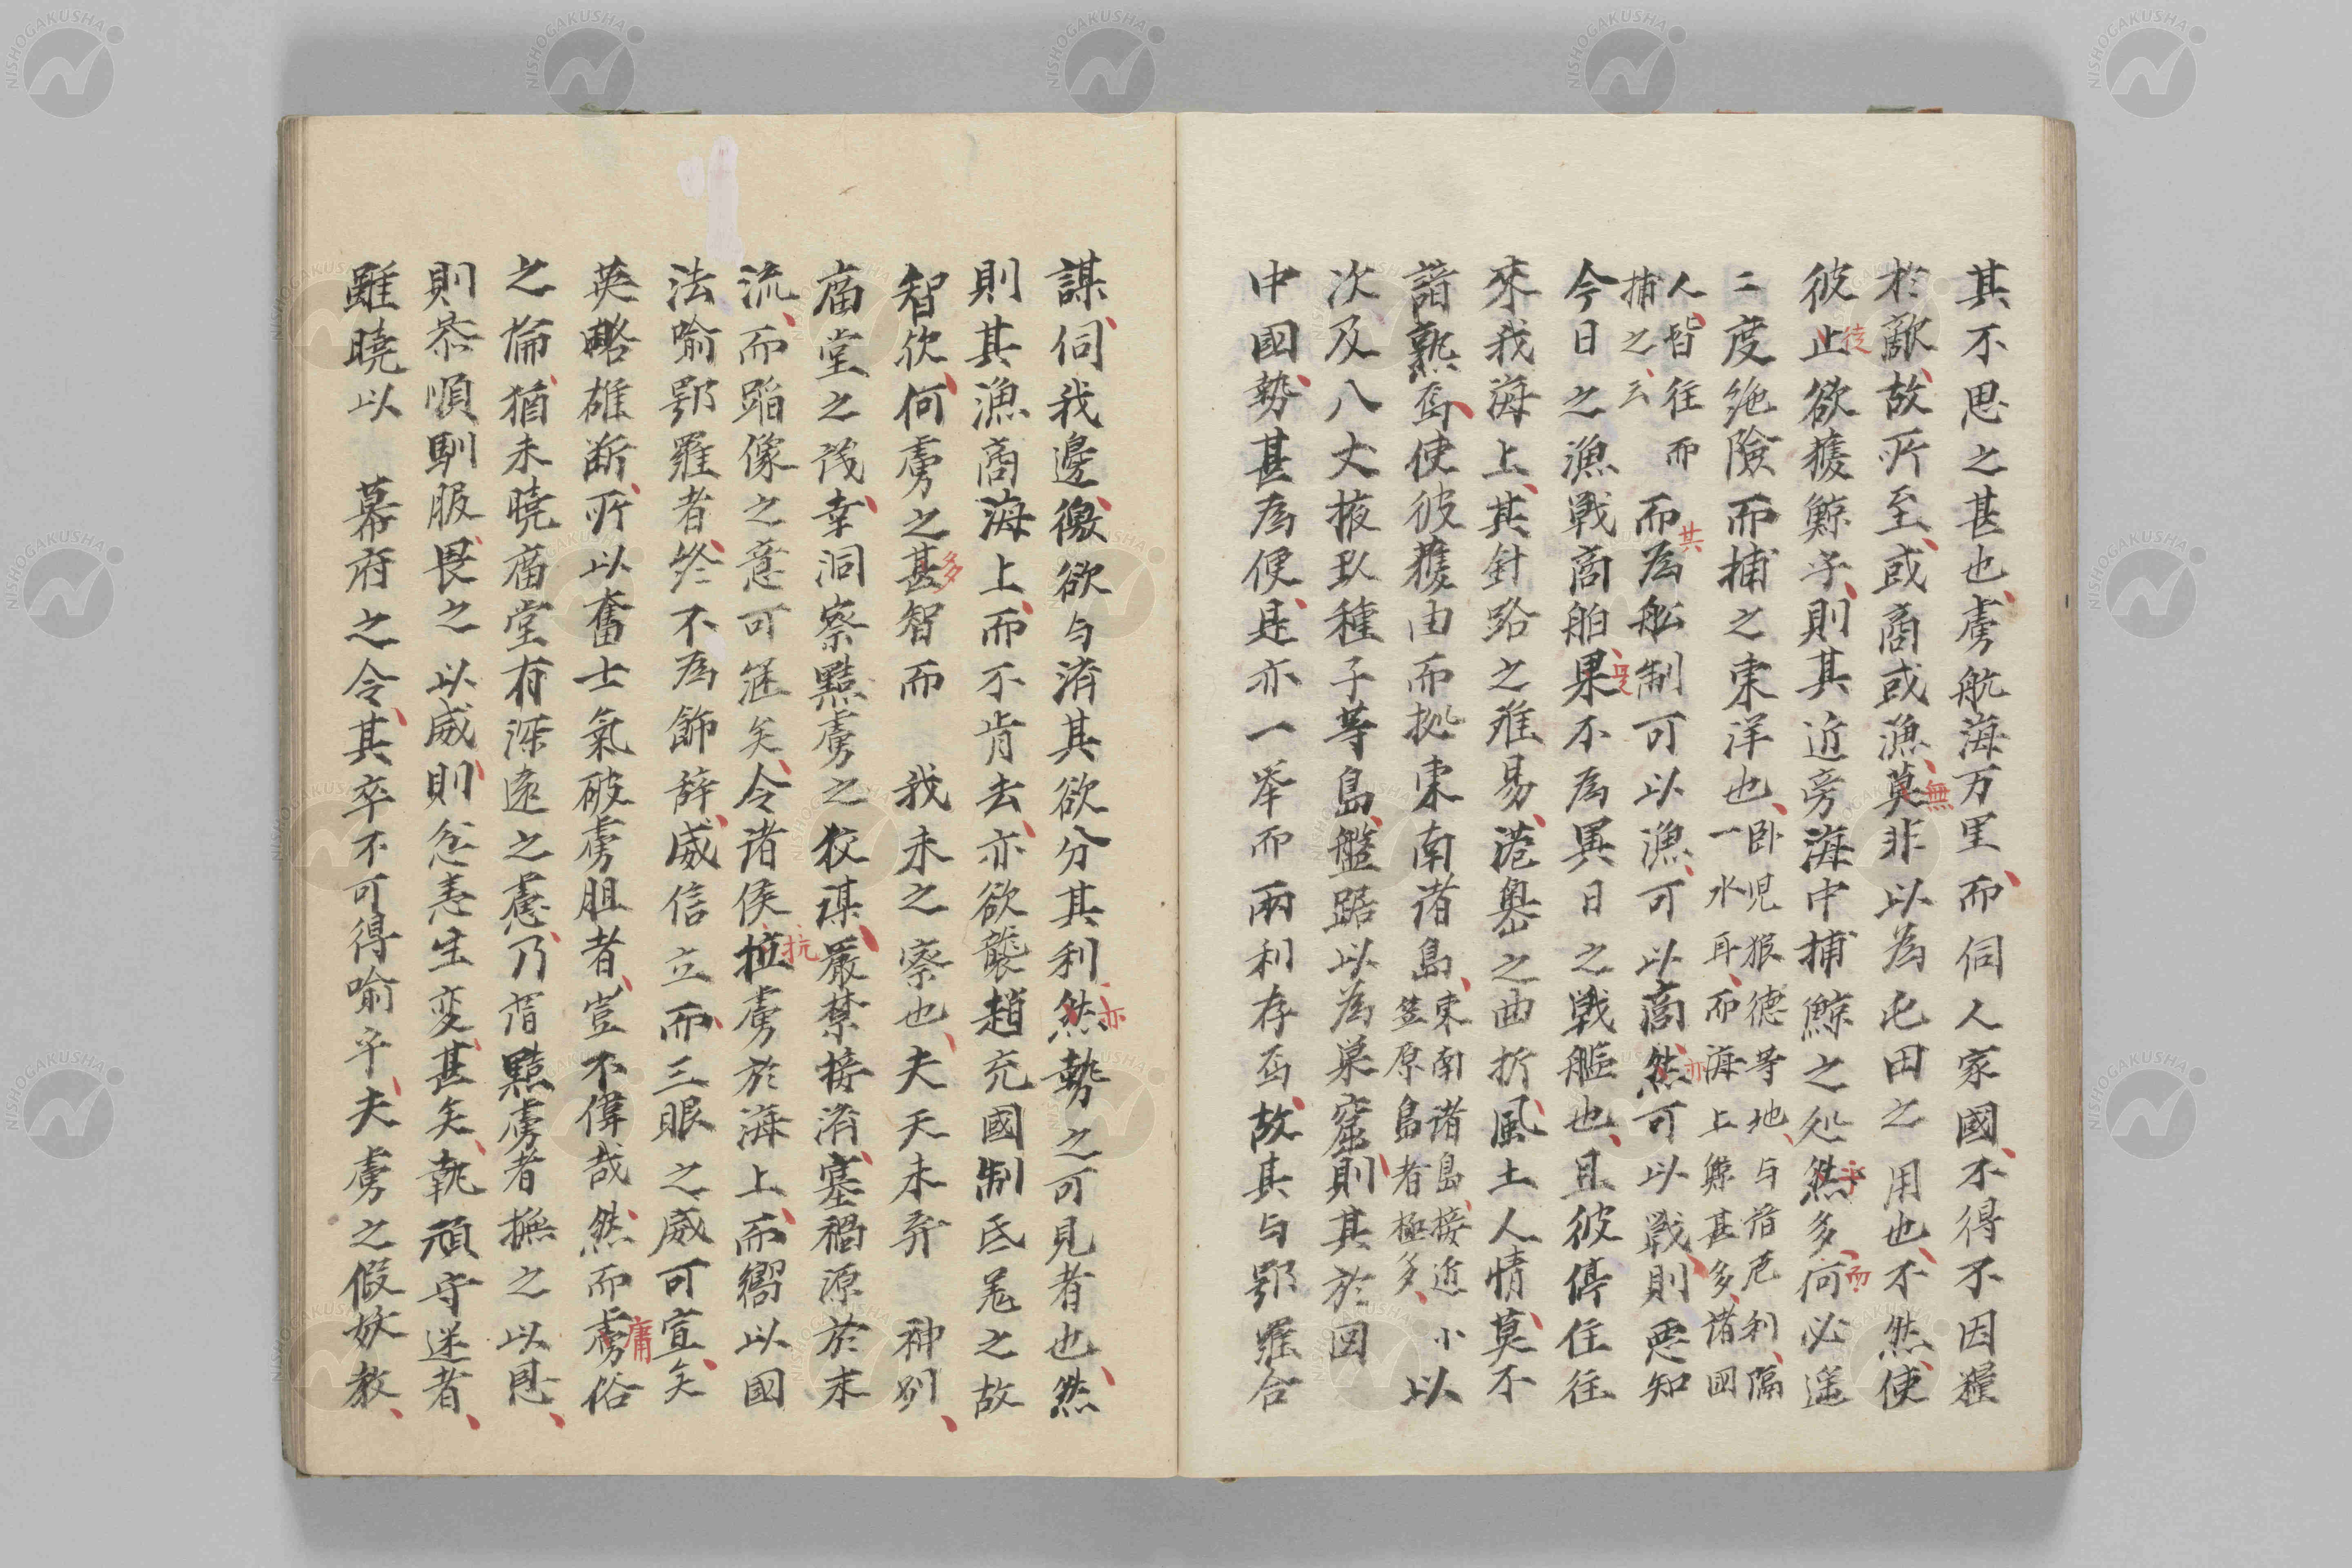 其不思之甚也虜航海万里而伺人家國不得不因糧
於敵故所至或商或漁莫無非以為屯田之用也不然使
彼止徒欲獲鯨乎則其近旁海中捕鯨之処然多何而必遥
二度絶險而捕之東洋也臥児狼德等地与諳厄利隔
一水耳而海上鯨甚多諸國
人皆往而
捕之云
而為共舩制可以漁可以商然亦可以戰則悪知
今日之漁戰商舶果是不為異日之戰艦也且彼停住往
來我海上其針路之難易港奥之曲折風土人情莫不
諳熟焉使彼獲由而拠東南諸島東南諸島接近小
笠原島者極多以
次及八丈掖玖種子等島盤踞以為巣窟則其於図
中國勢甚為便是亦一挙而兩利存焉故其与鄂羅合
謀伺我邊徼欲与済其欲分其利然亦勢之可見者也然
則其漁商海上而不肯去亦欲襲趙充國制氐羌之故
智欤何虜之甚多智而 我未之察也夫天未弃 神州
廟堂之議幸洞察黠虜之狡謀嚴禁接済塞禍源於未
流而蹈像之意可冺矣令諸侯拉抗虜於海上而嚮以國
法喻鄂羅者終不為飾辞威信立而三眼之威可宣矣
英略雄断所以奮士氣破虜胆者豈不偉哉然而虜庸俗
之倫猶未曉廟堂有深遠之慮乃謂黠虜者撫之以恩
則恭順馴服畏之以威則忿恚生変甚矣執頑守迷者
雖曉以 幕府之令其卒不可得喻乎夫虜之假妖教